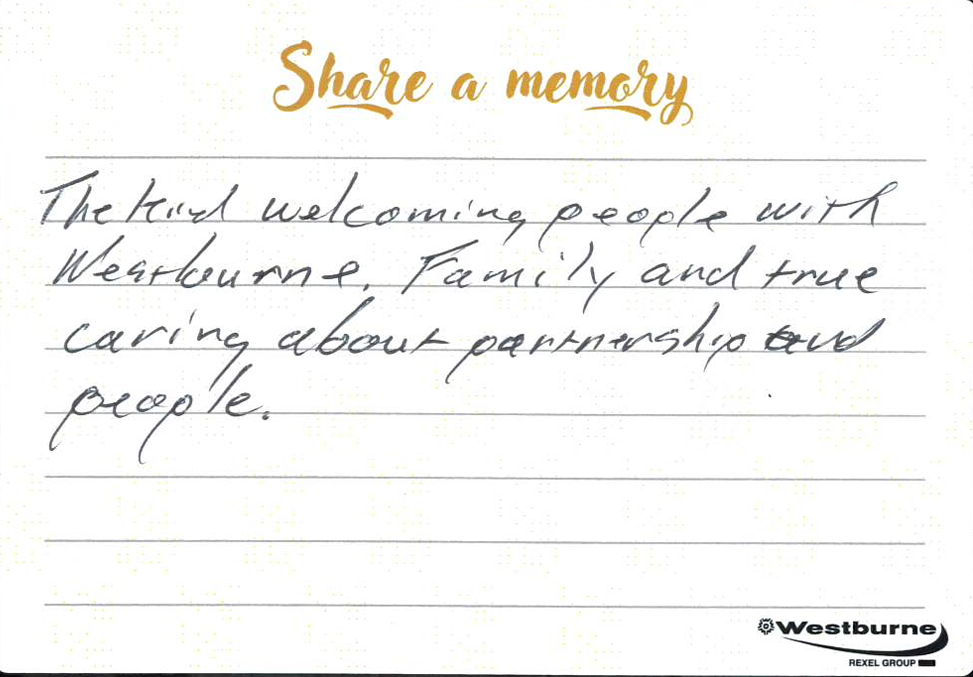 Share a memory
The kind welcoming people with
Westburne. Family and true
caring about partnership and
people.
Westburne
REXEL GROUP